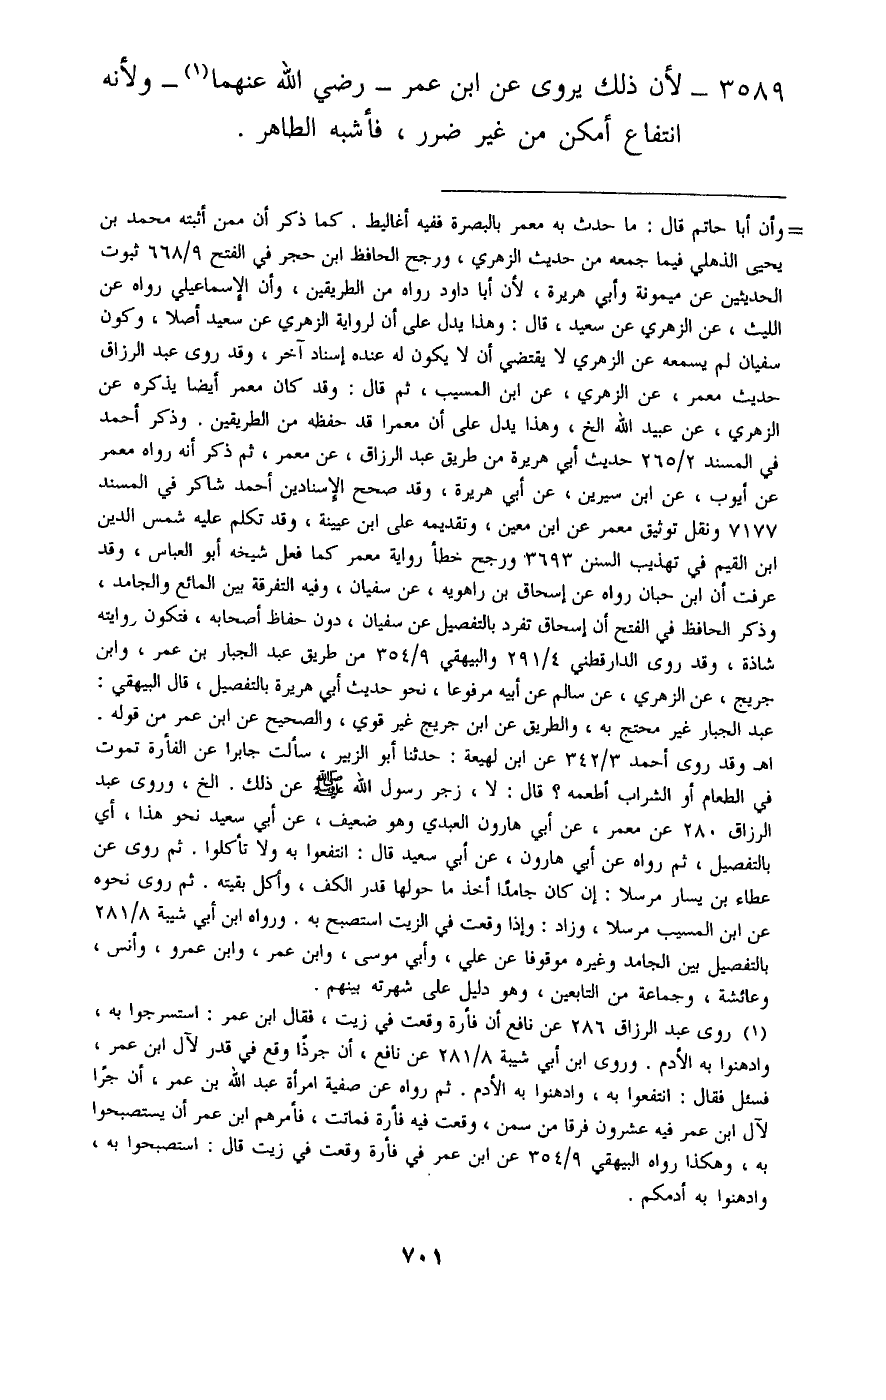 ٣٥٨٩ ــ لأن ذلك يروى عن ابن عمر ــ رضي الله عنهما(١) ــ ولأنه
انتفاع أمكن من غير ضرر ، فأشبه الطاهر .
= وأن أبا حاتم قال : ما حدث به معمر بالبصرة ففيه أغاليط . كما ذكر أن ممن أثبته محمد بن
يحيى الذهلي فيما جمعه من حديث الزهري ، ورجح الحافظ ابن حجر في الفتح ٦٦٨/٩ ثبوت
الحديثين عن ميمونة وأبي هريرة ، لأن أبا داود رواه من الطريقين ، وأن الإسماعيلي رواه عن
الليث ، عن الزهري عن سعيد ، قال : وهذا يدل على أن لرواية الزهري عن سعيد أصلا ، وكون
سفيان لم يسمعه عن الزهري لا يقتضي أن لا يكون له عنده إسناد آخر ، وقد روى عبد الرزاق
حديث معمر ، عن الزهري ، عن ابن المسيب ، ثم قال : وقد كان معمر أيضا يذكره عن
الزهري ، عن عبيد الله الخ ، وهذا يدل على أن معمرا قد حفظه من الطريقين . وذكر أحمد
في المسند ٢٦٥/٢ حديث أبي هريرة من طريق عبد الرزاق ، عن معمر ، ثم ذكر أنه رواه معمر
عن أيوب ، عن ابن سيرين ، عن أبي هريرة ، وقد صحح الإسنادين أحمد شاكر في المسند
٧١٧٧ ونقل توثيق معمر عن ابن معين ، وتقديمه على ابن عيينة ، وقد تكلم عليه شمس الدين
ابن القيم في تهذيب السنن ٣٦٩٣ ورجح خطأ رواية معمر كما فعل شيخه أبو العباس ، وقد
عرفت أن ابن حبان رواه عن إسحاق بن راهويه ، عن سفيان ، وفيه التفرقة بين المائع والجامد ،
وذكر الحافظ في الفتح أن إسحاق تفرد بالتفصيل عن سفيان ، دون حفاظ أصحابه ، فتكون روايته
شاذة ، وقد روى الدارقطني ٢٩١/٤ والبيهقي ٣٥٤/٩ من طريق عبد الجبار بن عمر ، وابن
جريج ، عن الزهري ، عن سالم عن أبيه مرفوعا ، نحو حديث أبي هريرة بالتفصيل ، قال البيهقي :
عبد الجبار غير محتج به ، والطريق عن ابن جريج غير قوي ، والصحيح عن ابن عمر من قوله .
اهـ وقد روى أحمد ٣٤٢/٣ عن ابن لهيعة : حدثنا أبو الزبير ، سألت جابرا عن الفأرة تموت
في الطعام أو الشراب أطعمه ؟ قال : لا ، زجر رسول الله ﷺ عن ذلك . الخ ، وروى عبد
الرزاق ٢٨٠ عن معمر ، عن أبي هارون العبدي وهو ضعيف ، عن أبي سعيد نحو هذا ، أي
بالتفصيل ، ثم رواه عن أبي هارون ، عن أبي سعيد قال : انتفعوا به ولا تأكلوا . ثم روى عن
عطاء بن يسار مرسلا : إن كان جامدًا أخذ ما حولها قدر الكف ، وأكل بقيته . ثم روى نحوه
عن ابن المسيب مرسلا ، وزاد : وإذا وقعت في الزيت استصبح به . ورواه ابن أبي شيبة ٢٨١/٨
بالتفصيل بين الجامد وغيره موقوفا عن علي ، وأبي موسى ، وابن عمر ، وابن عمرو ، وأنس ،
وعائشة ، وجماعة من التابعين ، وهو دليل على شهرته بينهم .
(١) روى عبد الرزاق ٢٨٦ عن نافع أن فأرة وقعت في زيت ، فقال ابن عمر : استسرجوا به ،
وادهنوا به الأدم . وروى ابن أبي شيبة ٢٨١/٨ عن نافع ، أن جرذًا وقع في قدر لآل ابن عمر ،
فسئل فقال : انتفعوا به ، وادهنوا به الأدم . ثم رواه عن صفية امرأة عبد الله بن عمر ، أن جرًا
لآل ابن عمر فيه عشرون فرقا من سمن ، وقعت فيه فأرة فماتت ، فأمرهم ابن عمر أن يستصبحوا
به ، وهكذا رواه البيهقي ٣٥٤/٩ عن ابن عمر في فأرة وقعت في زيت قال : استصبحوا به ،
وادهنوا به أدمكم .
٧٠١